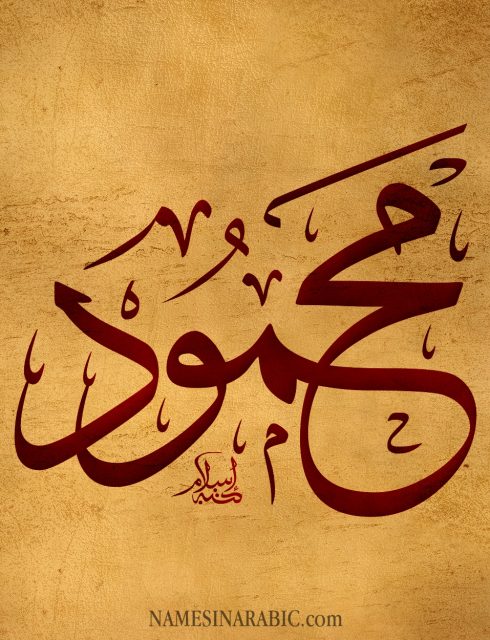 محمود
كتبه إسلام
NAMESINARABIC.com